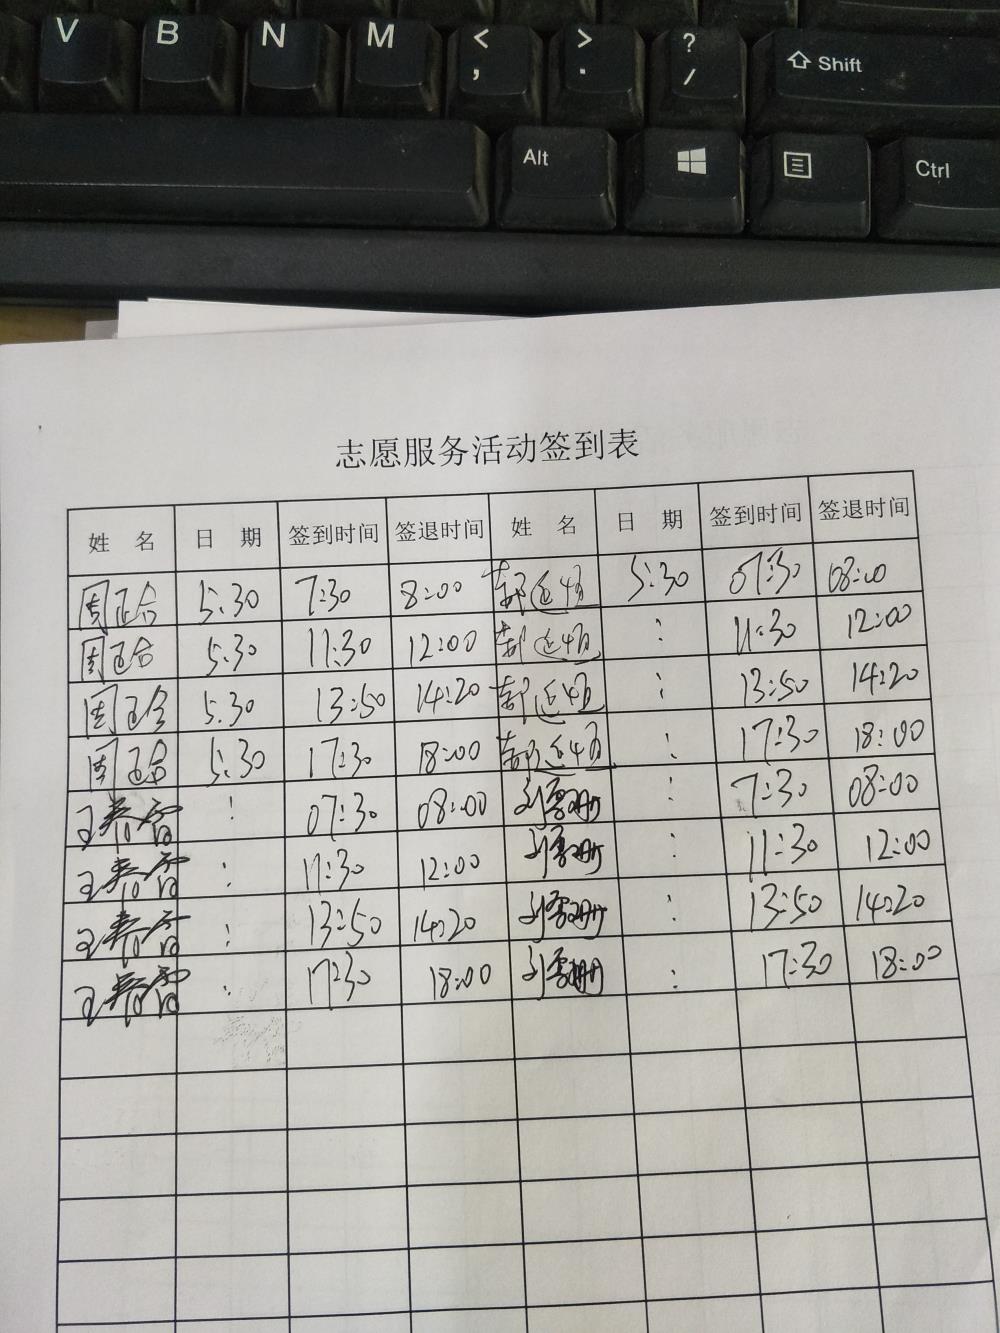 V B N M < , > . ? / Shift
Alt Ctrl
志愿服务活动签到表
姓 名 日 期 签到时间 签退时间 姓 名 日 期 签到时间 签退时间
周正合 5.30 7:30 8:00 5:30 07:30 08:00
周正合 5.30 11:30 12:00 : 11:30 12:00
周正合 5.30 13:50 14:20 : 13:50 14:20
周正合 5:30 17:30 18:00 : 17:30 18:00
: 07:30 08:00 : 7:30 08:00
: 11:30 12:00 : 11:30 12:00
: 13:50 14:20 : 13:50 14:20
: 17:30 18:00 : 17:30 18:00